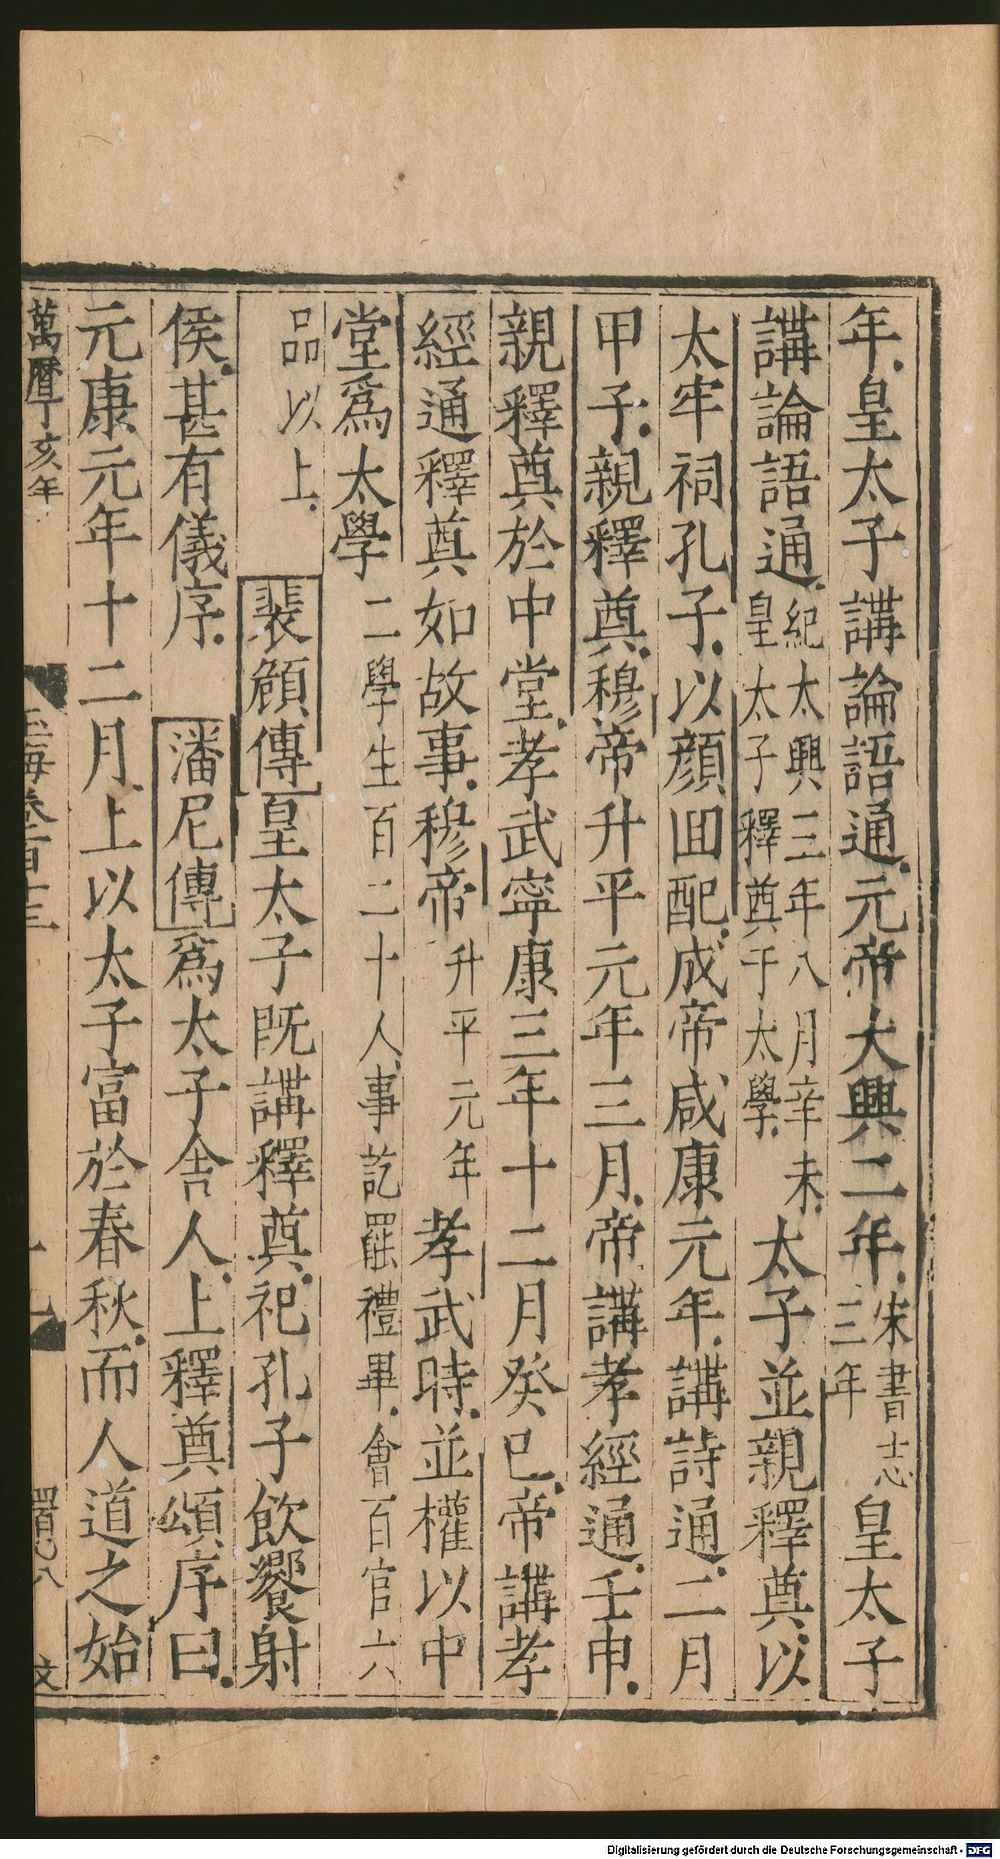 年皇太子講論語通元帝大興二年宋書志三年皇太子
講論語通紀太興三年八月辛未皇太子釋奠于太學太子並親釋奠以
太牢祠孔子以顔回配成帝咸康元年講詩通二月
甲子親釋奠穆帝升平元年三月帝講孝經通壬申
親釋奠於中堂孝武寧康三年十二月癸巳帝講孝
經通釋奠如故事穆帝升平元年孝武時並權以中
堂爲太學二學生百二十人事訖罷禮畢會百官六
品以上裴頠傳皇太子既講釋奠祀孔子飲饗射
侯甚有儀序潘尼傳爲太子舍人上釋奠頌序曰
元康元年十二月上以太子富於春秋而人道之始
萬曆丁亥年
玉海卷百十三
文
Digitalisierung gefördert durch die Deutsche Forschungsgemeinschaft - DFG